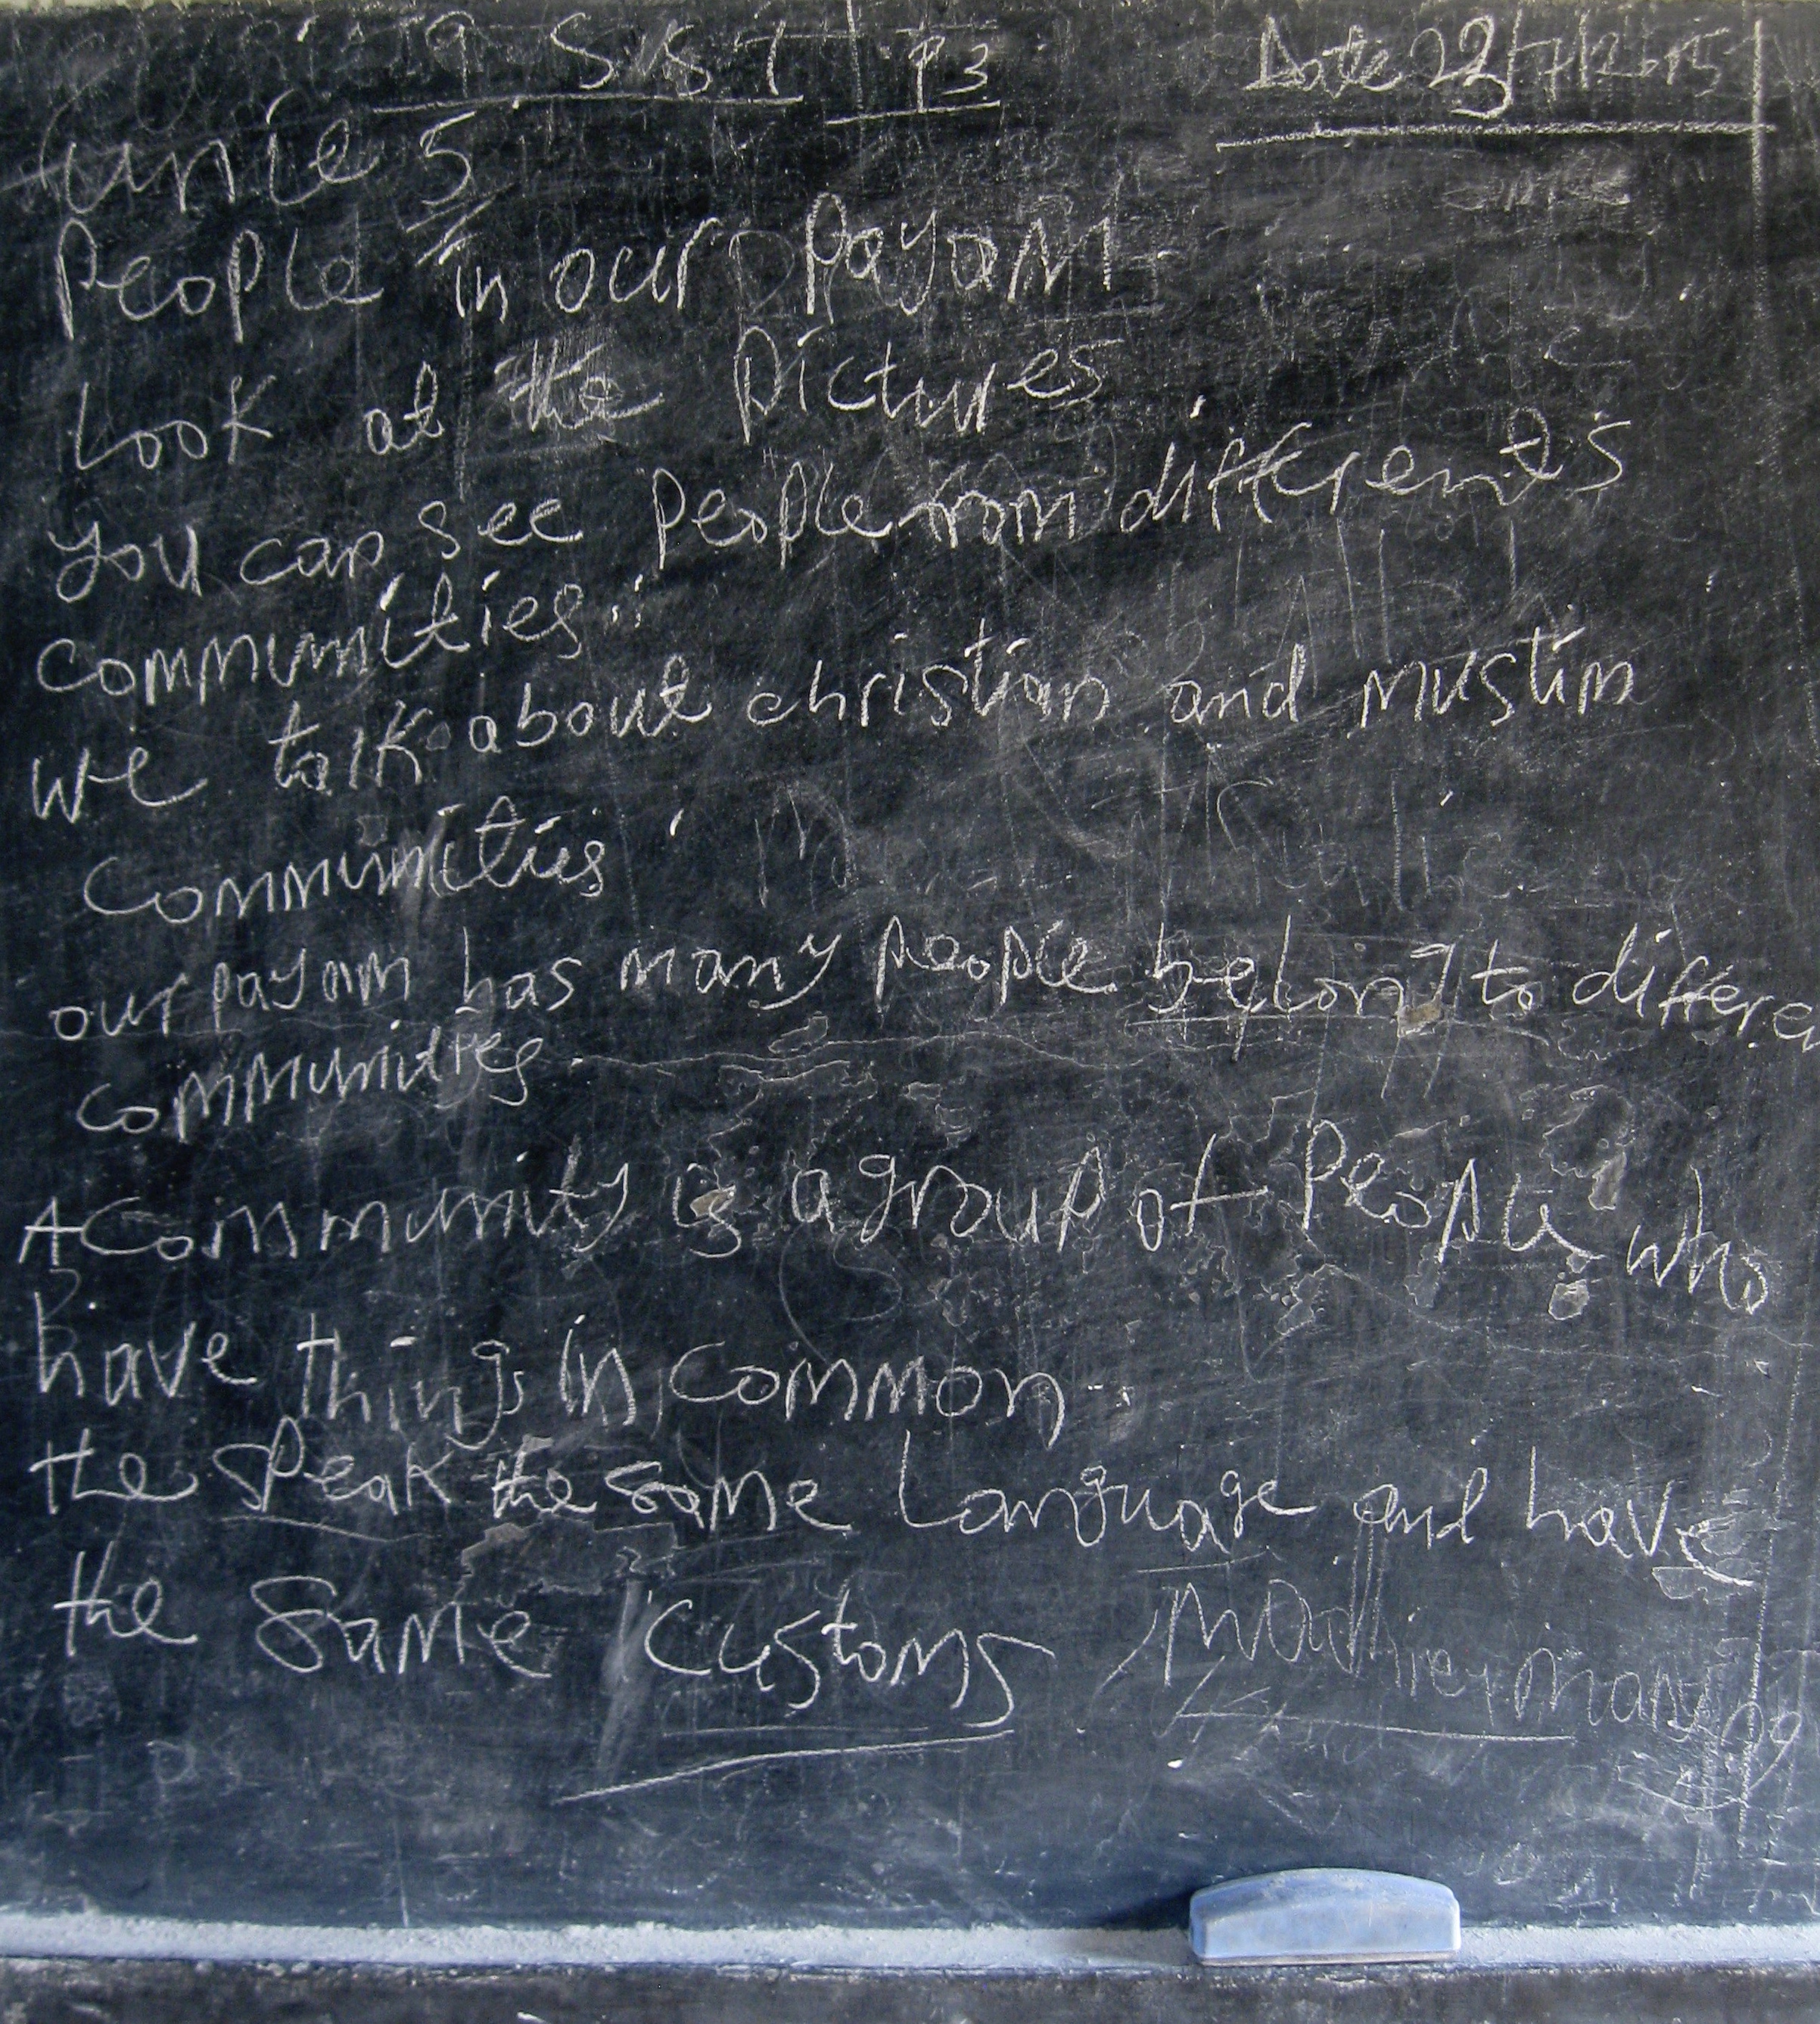 S S T P3 Date 23/7/2015
unie 5
People in our Payam
Look at the Pictures
you can see People from differents
communities
we talk about christian and mustim
Communities
our payam has many people belong to differe
communities
A Community is a group of People who
have things in common
the speak the same Language and have
the same customs